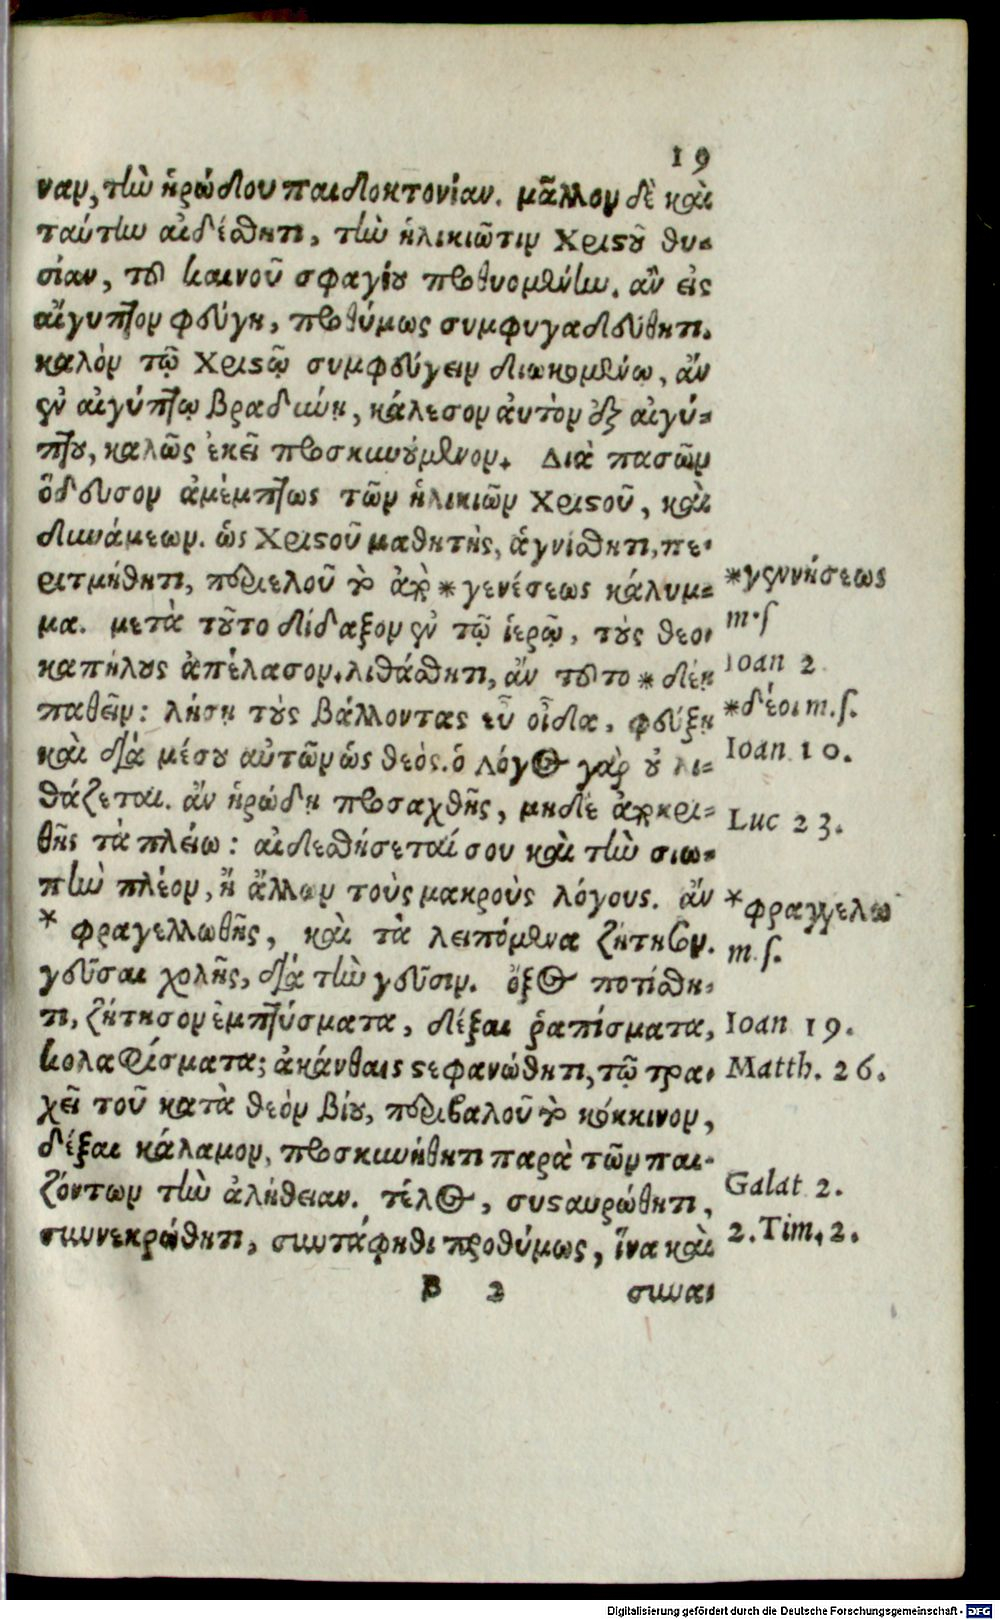 19
ναν, τὴν ἡρώδου παιδοκτονίαν. μᾶλλον δὲ καὶ
ταύτην αἰδέσθητι, τὴν ἡλικιῶτιν Χριστοῦ θυ-
σίαν, τοῦ καινοῦ σφαγίου προθυομένην. ἂν εἰς
αἴγυπτον φεύγῃ, προθύμως συμφυγαδεύθητι.
καλὸν τῷ Χριστῷ συμφεύγειν διωκομένῳ, ἂν
ἐν αἰγύπτῳ βραδύνῃ, κάλεσον αὐτὸν ἐξ αἰγύ-
πτου, καλῶς ἐκεῖ προσκυνούμενον. Διὰ πασῶν
ὅδευσον ἀμέμπτως τῶν ἡλικιῶν Χριστοῦ, καὶ
δυνάμεων. ὡς Χριστοῦ μαθητὴς, ἁγνίσθητι, πε-
ριτμήθητι, περιελοῦ τὸ ἀπὸ *γενέσεως κάλυμ-
μα. μετὰ τοῦτο δίδαξον ἐν τῷ ἱερῷ, τοὺς θεο-
καπήλους ἀπέλασον. λιθάσθητι, ἂν τοῦτο *δέῃ
παθεῖν: λήσῃ τοὺς βάλλοντας εὖ οἶδα, φεύξῃ
καὶ διὰ μέσου αὐτῶν ὡς θεός. ὁ λόγος γὰρ οὐ λι-
θάζεται. ἂν ἡρώδῃ προσαχθῇς, μηδὲ ἀποκρι-
θῇς τὰ πλείω: αἰδεσθήσεταί σου καὶ τὴν σιω-
πὴν πλέον, ἢ ἄλλων τοὺς μακροὺς λόγους. ἂν
*φραγελλωθῇς, καὶ τὰ λειπόμενα ζήτησον.
γεῦσαι χολῆς, διὰ τὴν γεῦσιν. ὄξος ποτίσθη-
τι, ζήτησον ἐμπτύσματα, δέξαι ῥαπίσματα,
κολαφίσματα; ἀκάνθαις στεφανώθητι, τῷ τρα-
χεῖ τοῦ κατὰ θεὸν βίου, περιβαλοῦ τὸ κόκκινον,
δέξαι κάλαμον, προσκυνήθητι παρὰ τῶν παι-
ζόντων τὴν ἀλήθειαν. τέλος, συσταυρώθητι,
συννεκρώθητι, συντάφηθι προθύμως, ἵνα καὶ
B 2 συνα-
*γεννήσεως
m.s
Ioan 2
*δέοι m.s.
Ioan 10.
Luc 23.
*φραγγελω
m.s.
Ioan 19.
Matth. 26.
Galat 2.
2. Tim. 2.
Digitalisierung gefördert durch die Deutsche Forschungsgemeinschaft - DFG